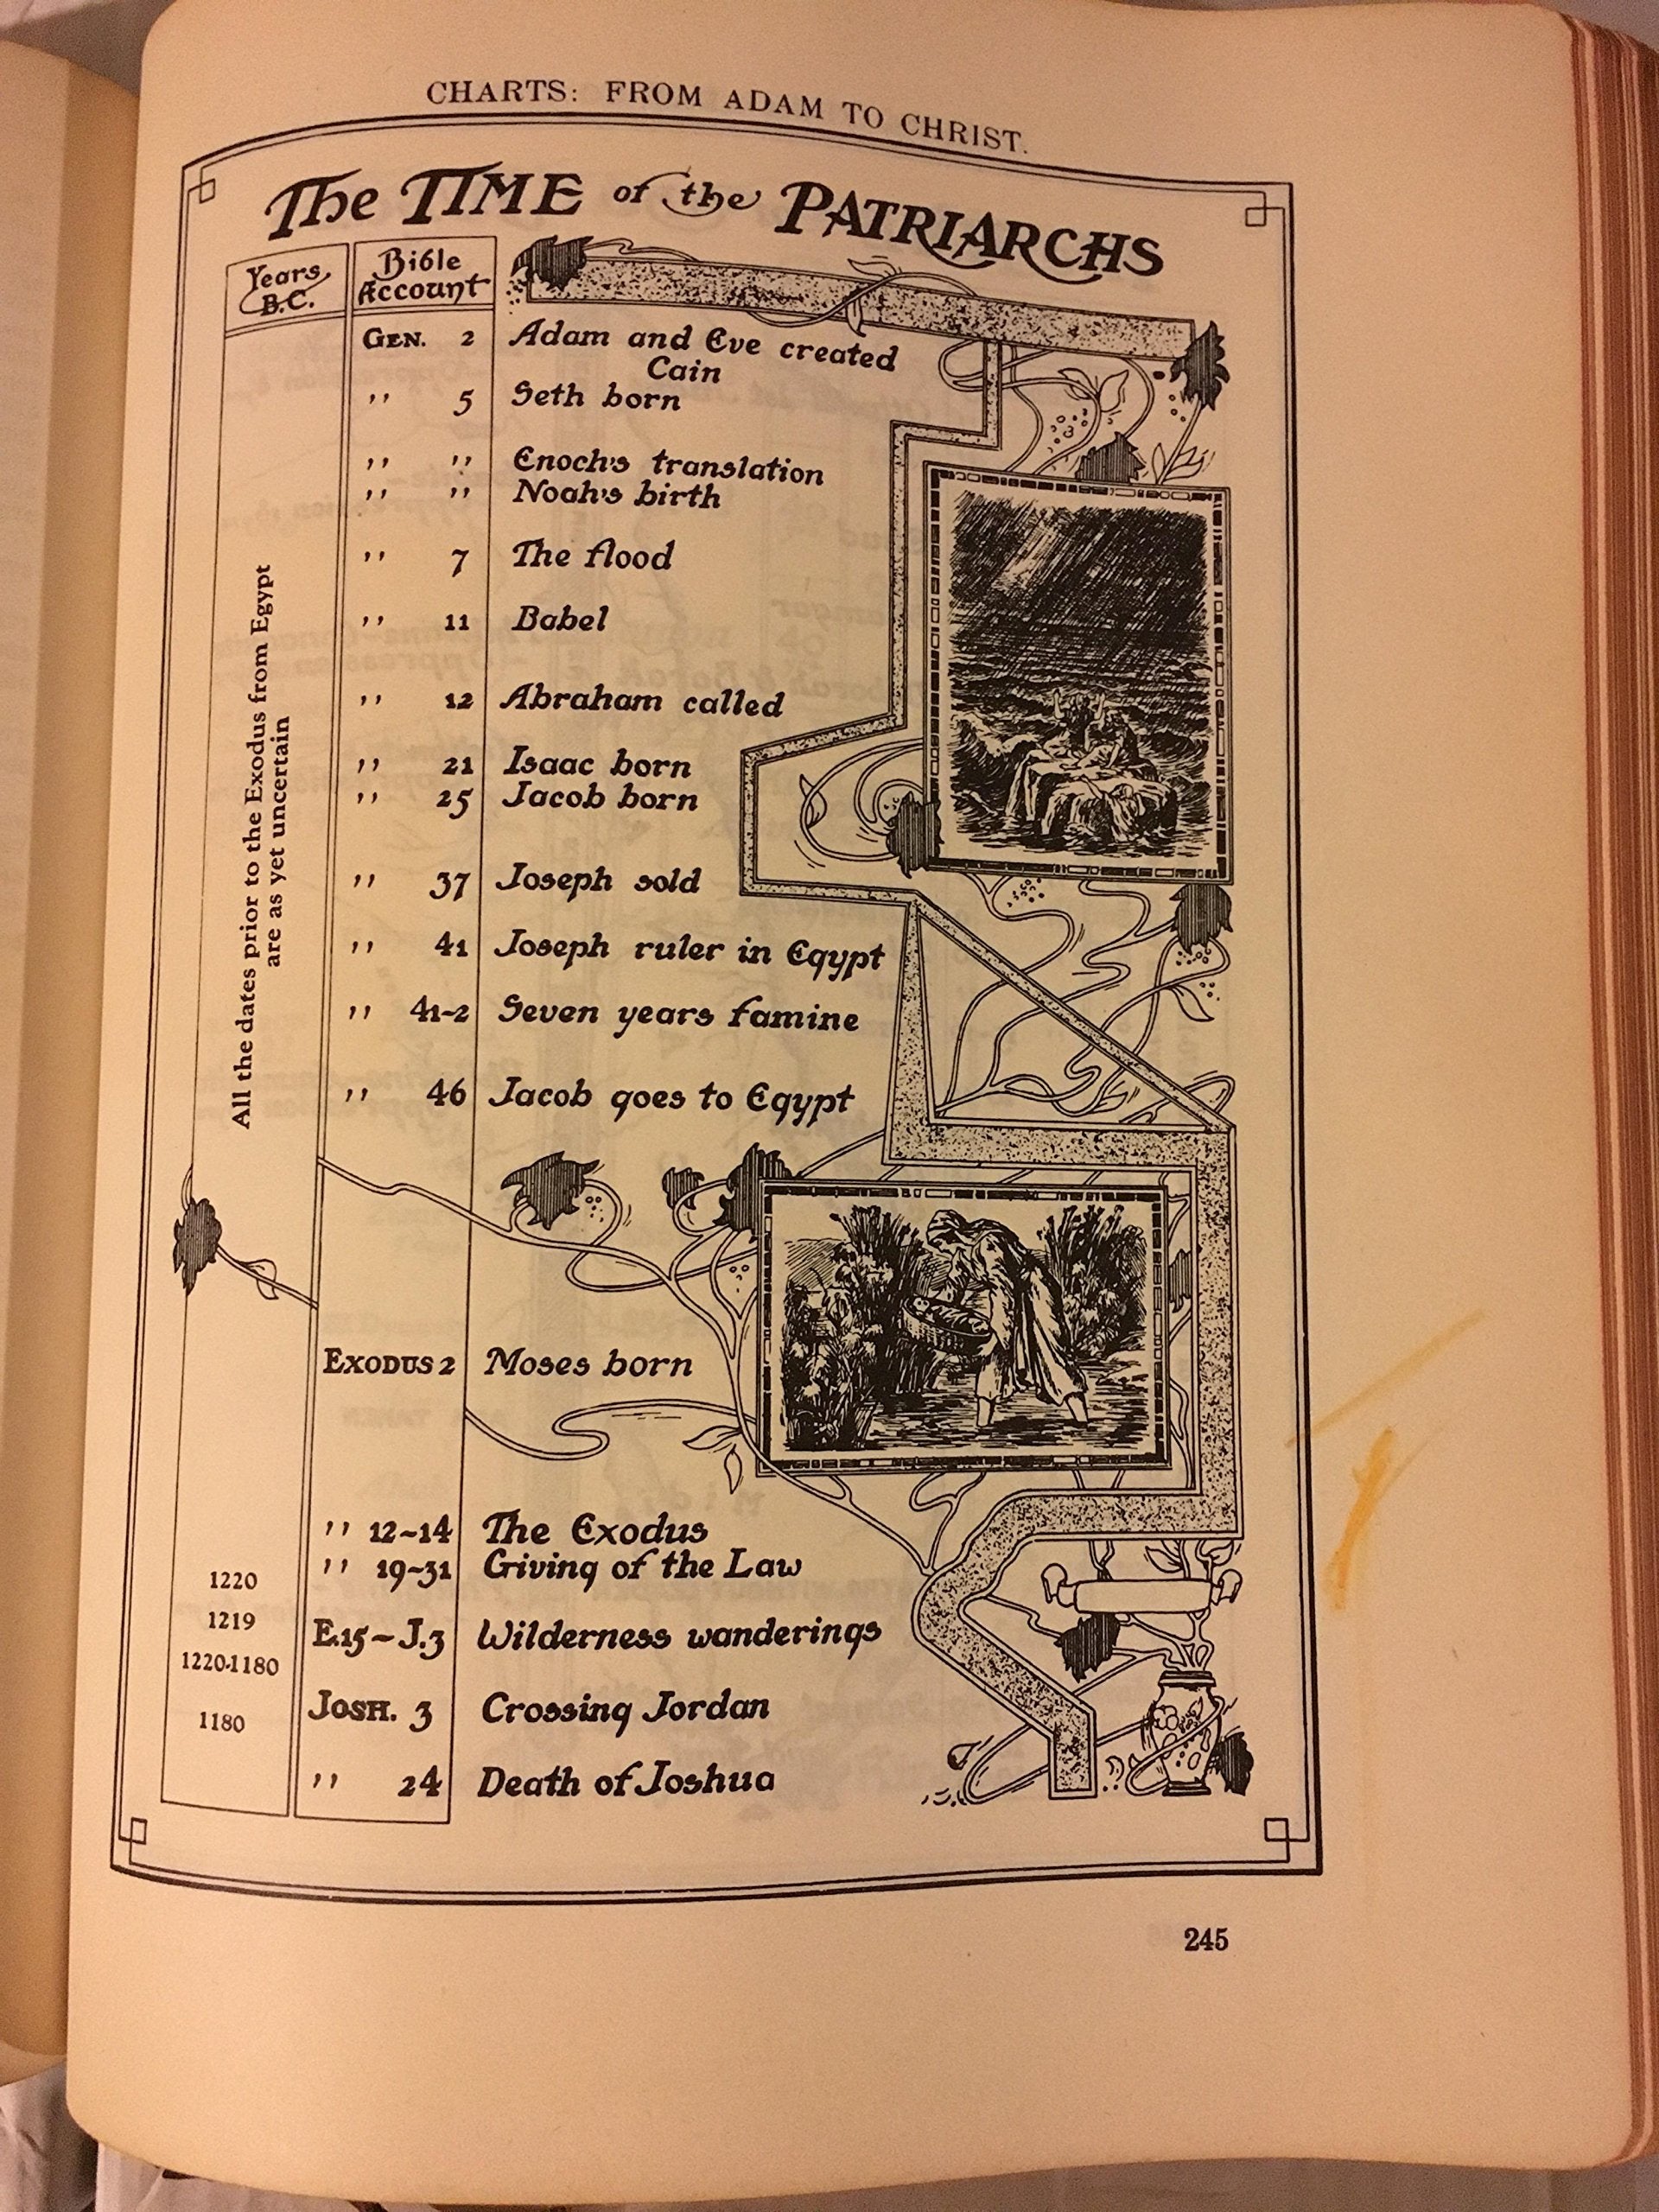 CHARTS: FROM ADAM TO CHRIST.
The TIME of the PATRIARCHS
Years B.C.
Bible Account
All the dates prior to the Exodus from Egypt
are as yet uncertain
GEN. 2 Adam and Eve created
Cain
,, 5 Seth born
,, ,, Enoch's translation
,, ,, Noah's birth
,, 7 The flood
,, 11 Babel
,, 12 Abraham called
,, 21 Isaac born
,, 25 Jacob born
,, 37 Joseph sold
,, 41 Joseph ruler in Egypt
,, 41-2 Seven years famine
,, 46 Jacob goes to Egypt
EXODUS 2 Moses born
,, 12-14 The Exodus
1220 ,, 19-31 Giving of the Law
1219
E.15-J.3 Wilderness wanderings
1220-1180
JOSH. 3 Crossing Jordan
1180
,, 24 Death of Joshua
245